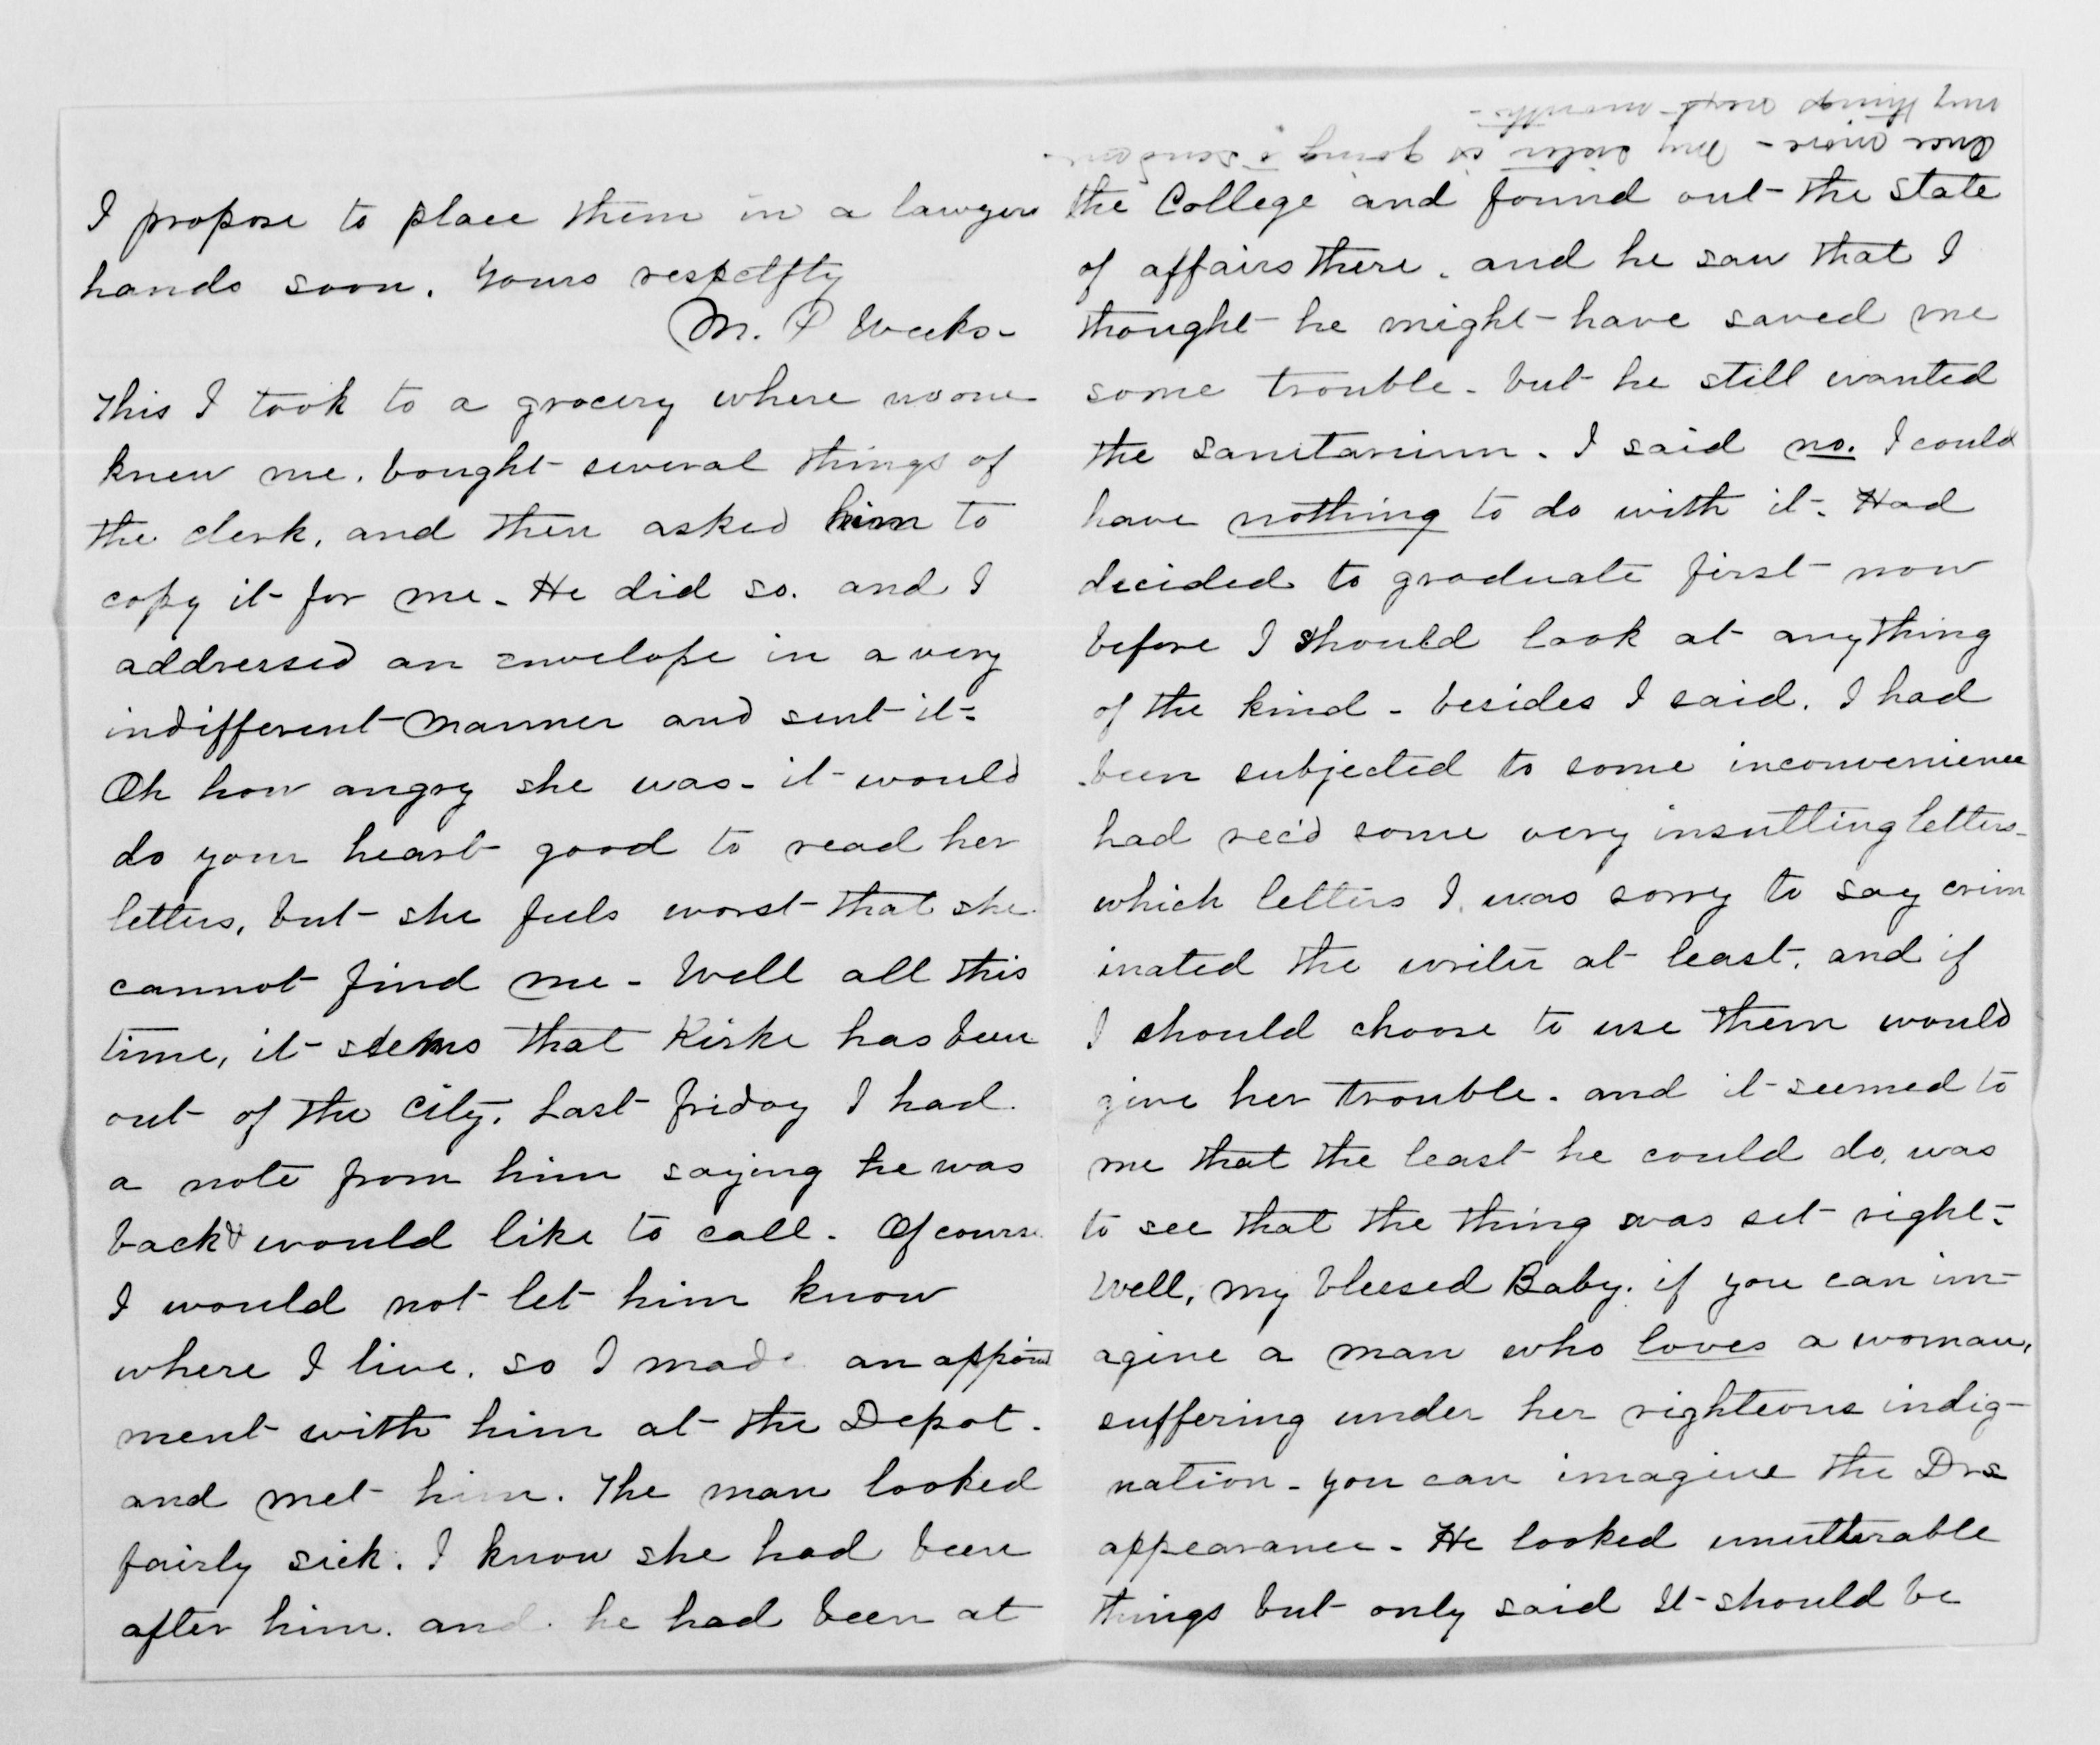 I propose to place them in a lawyers
hands soon. Yours respctfly
M. P Weeks-
This I took to a grocery where no one
knew me. bought several things of
the clerk, and then asked him to
copy it for me. He did so. and I
addressed an envelope in a very
indifferent manner and sent it-
Oh how angry she was- it would
do your heart good to read her
letters, but she feels worst that she
cannot find me- Well all this
time, it seems that Kirke has been
out of the city. Last friday I had
a note from him saying he was
back & would like to call. Of course
I would not let him know
where I live. so I made an appoint
ment with him at the Depot.
and met him. The man looked
fairly sick. I know she had been
after him. and he had been at
once more- My sister is going to send me
my things next month-
the College and found out the state
of affairs there. and he saw that I
thought he might have saved me
some trouble- but he still wanted
the sanitarium. I said no. I could
have nothing to do with it- Had
decided to graduate first now
before I should look at anything
of the kind- besides I said. I had
been subjected to some inconvenience
had rec'd some very insulting letters-
which letters I was sorry to say crim
inated the writer at least. and if
I should choose to use them would
give her trouble. and it seemed to
me that the least he could do, was
to see that the thing was set right-
Well, my blessed Baby. if you can im-
agine a man who loves a woman,
suffering under her righteous indig-
nation- you can imagine the Drs
appearance- He looked unutterable
things but only said It should be